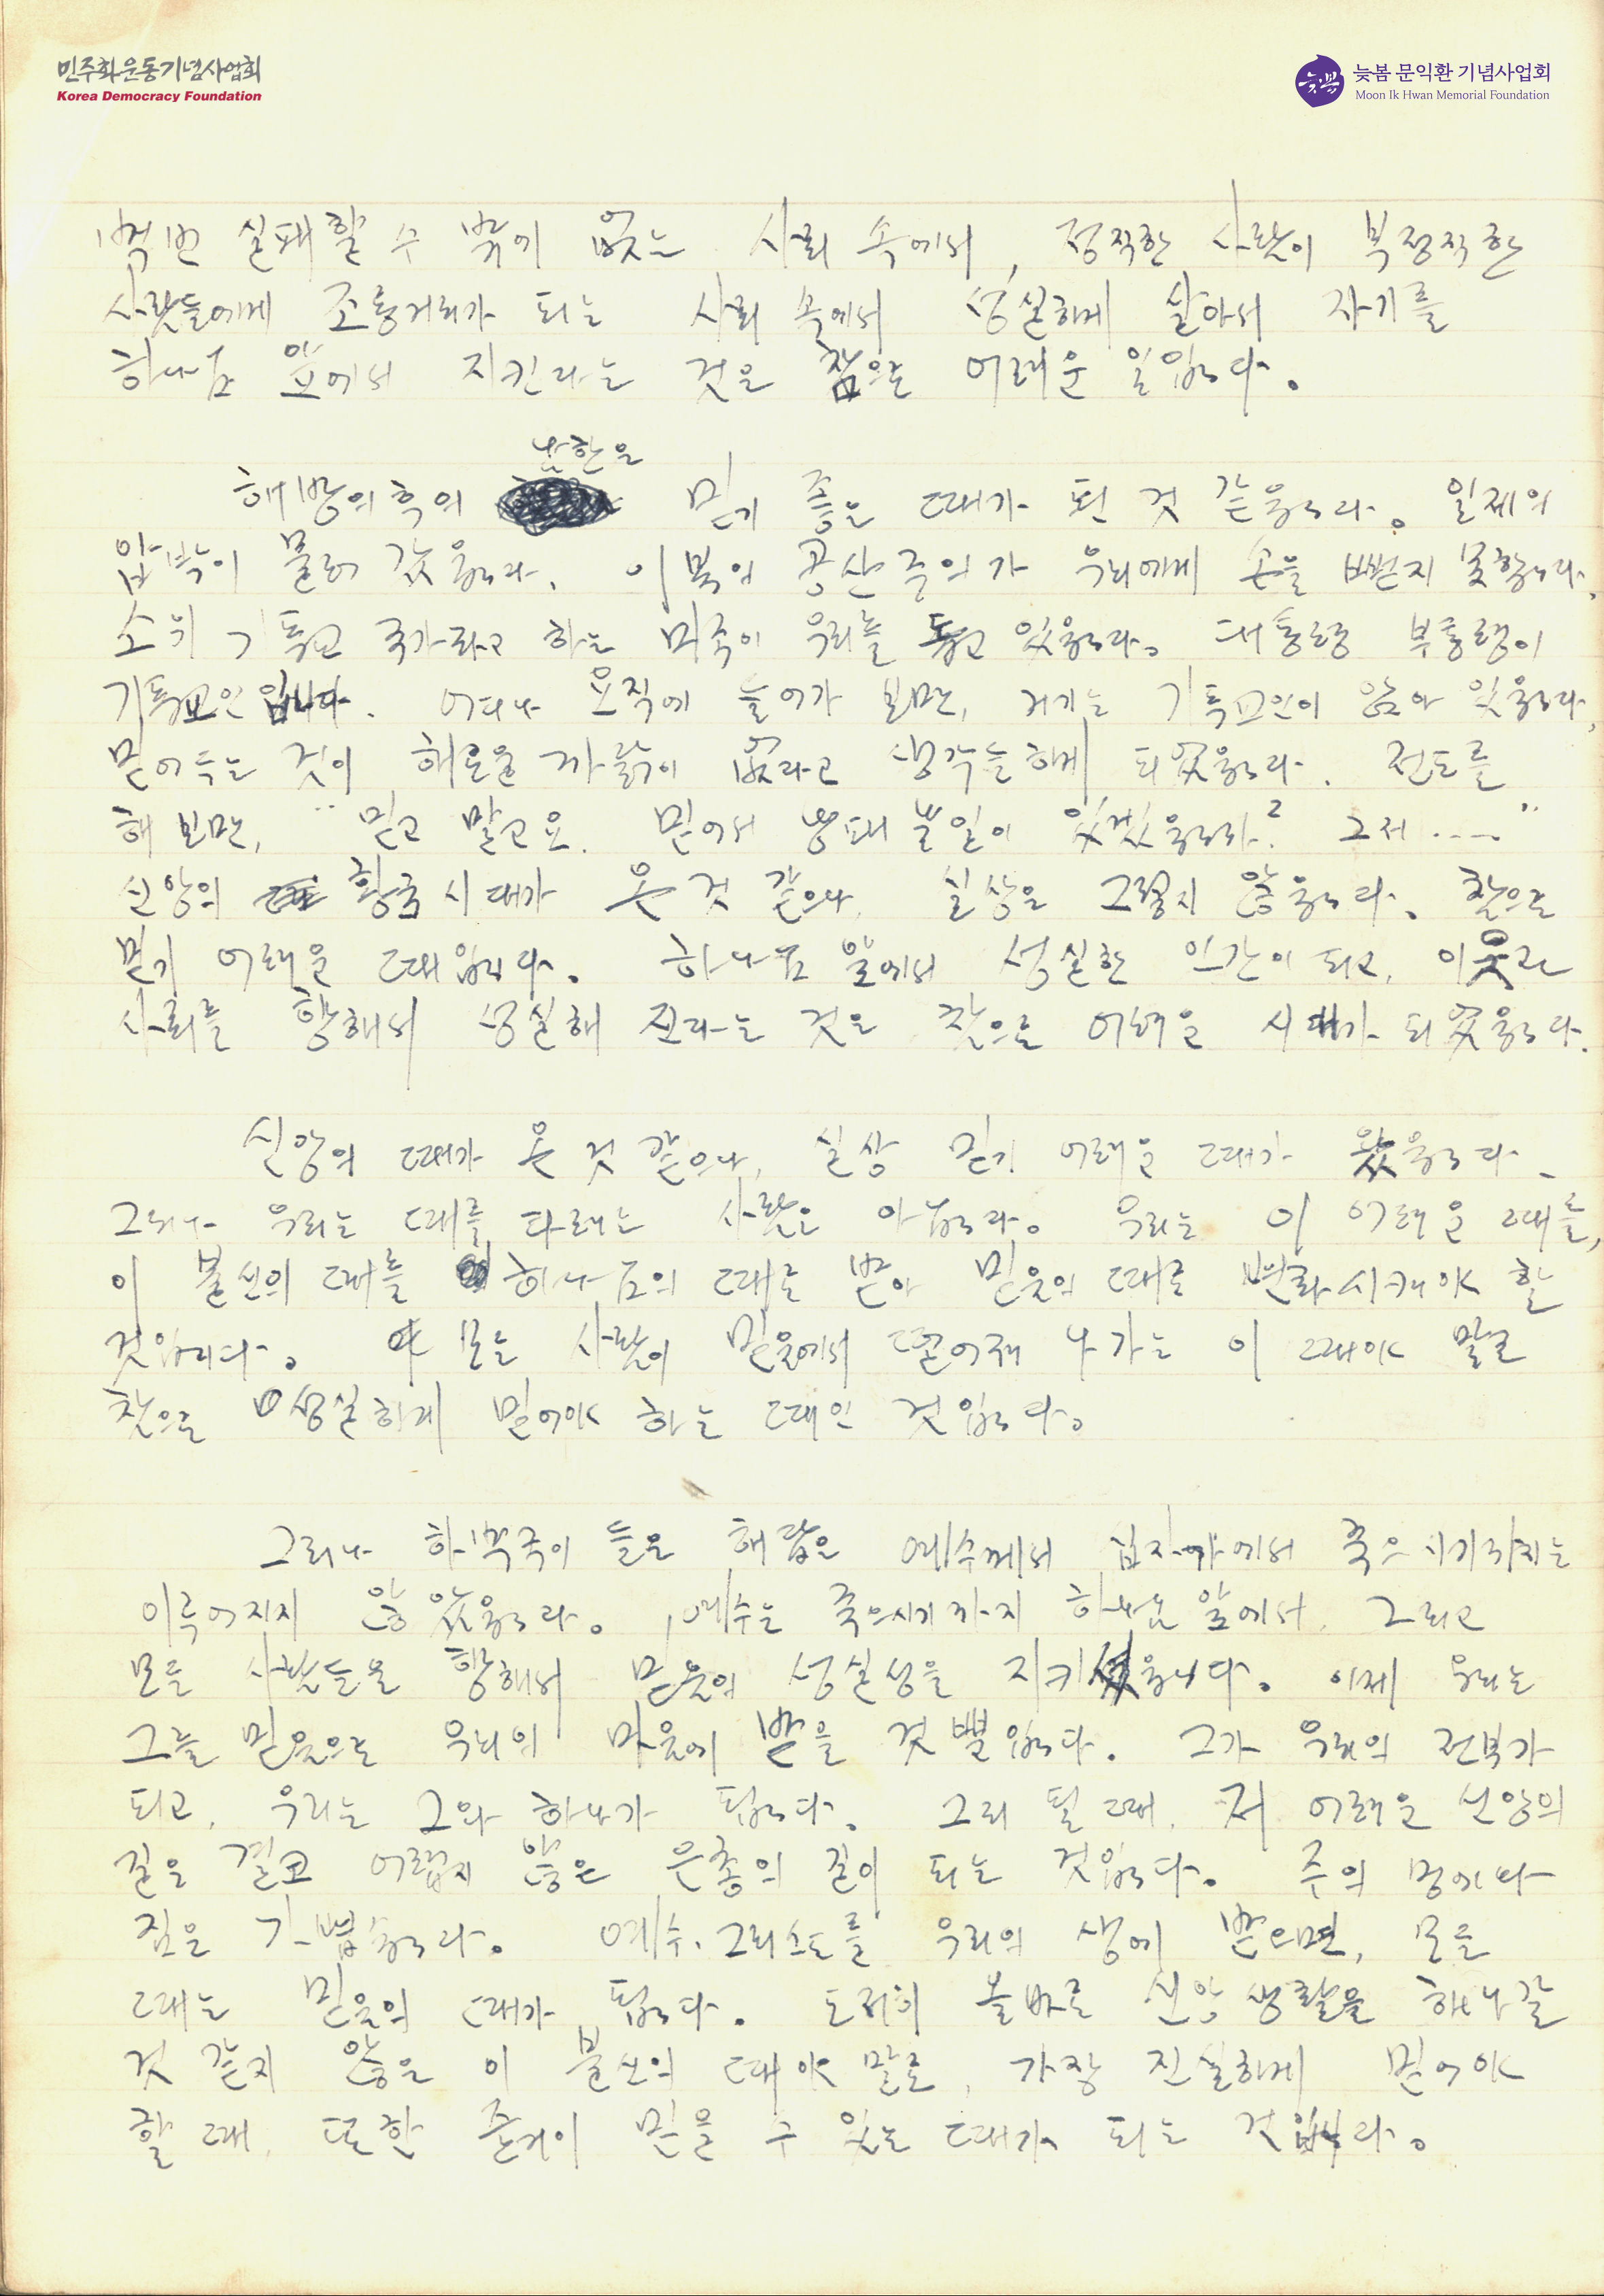 민주화운동기념사업회
Korea Democracy Foundation
늦봄 문익환 기념사업회
Moon Ik Hwan Memorial Foundation
늦봄
백번 실패할 수 밖에 없는 사회 속에서, 정직한 사람이 부정직한
사람들에게 조롱거리가 되는 사회 속에서 성실하게 살아서 자기를
하나님 앞에서 지킨다는 것은 참으로 어려운 일입니다.
남한은
해방의후의 믿기 좋은 때가 된 것 같읍니다. 일제의
압박이 물러 갔읍니다. 이북의 공산주의가 우리에게 손을 뻗지 못합니다.
소위 기독교 국가라고 하는 미국이 우리를 돕고 있읍니다. 대통령 부통령이
기독교인입니다. 어디나 요직에 들어가 보면, 거기는 기독교인이 앉아 있읍니다.
믿어두는 것이 해로울 까닭이 없다고 생각들하게 되었읍니다. 전도를
해 보면, "믿고 말고요. 믿어서 낭패 볼일이 있겠읍니까? 그저 ....."
신앙의 황금시대가 온 것 같으나, 실상은 그렇지 않읍니다. 참으로
믿기 어려운 때입니다. 하나님 앞에서 성실한 인간이 되고, 이웃과
사회를 향해서 성실해 진다는 것은 참으로 어려운 시대가 되었읍니다.
신앙의 때가 온 것 같으나, 실상 믿기 어려운 때가 왔읍니다.
그러나 우리는 때를 따르는 사람은 아닙니다. 우리는 이 어려운 때를,
이 불신의 때를 하나님의 때로 받아 믿음의 때로 변화시켜야 할
것입니다. 모든 사람이 믿음에서 떨어져 나가는 이 때야 말로
참으로 성실하게 믿어야 하는 때인 것입니다.
그러나 하박국이 들은 해답은 예수께서 십자가에서 죽으시기까지는
이루어지지 않았읍니다. 예수는 죽으시기까지 하나님 앞에서, 그리고
모든 사람들을 향해서 믿음의 성실성을 지키셨읍니다. 이제 우리는
그를 믿음으로 우리의 마음에 받을 것 뿐입니다. 그가 우리의 전부가
되고, 우리는 그와 하나가 됩니다. 그리 될 때, 저 어려운 신앙의
길은 결코 어렵지 않은 은총의 길이 되는 것입니다. 주의 멍에와
짐은 가볍습니다. 예수 그리스도를 우리의 생에 받으면, 모든
때는 믿음의 때가 됩니다. 도저히 올바른 신앙 생활을 하나갈
것 같지 않은 이 불신의 때야 말로, 가장 진실하게 믿어야
할 때, 또한 즐거이 믿을 수 있는 때가 되는 것입니다.